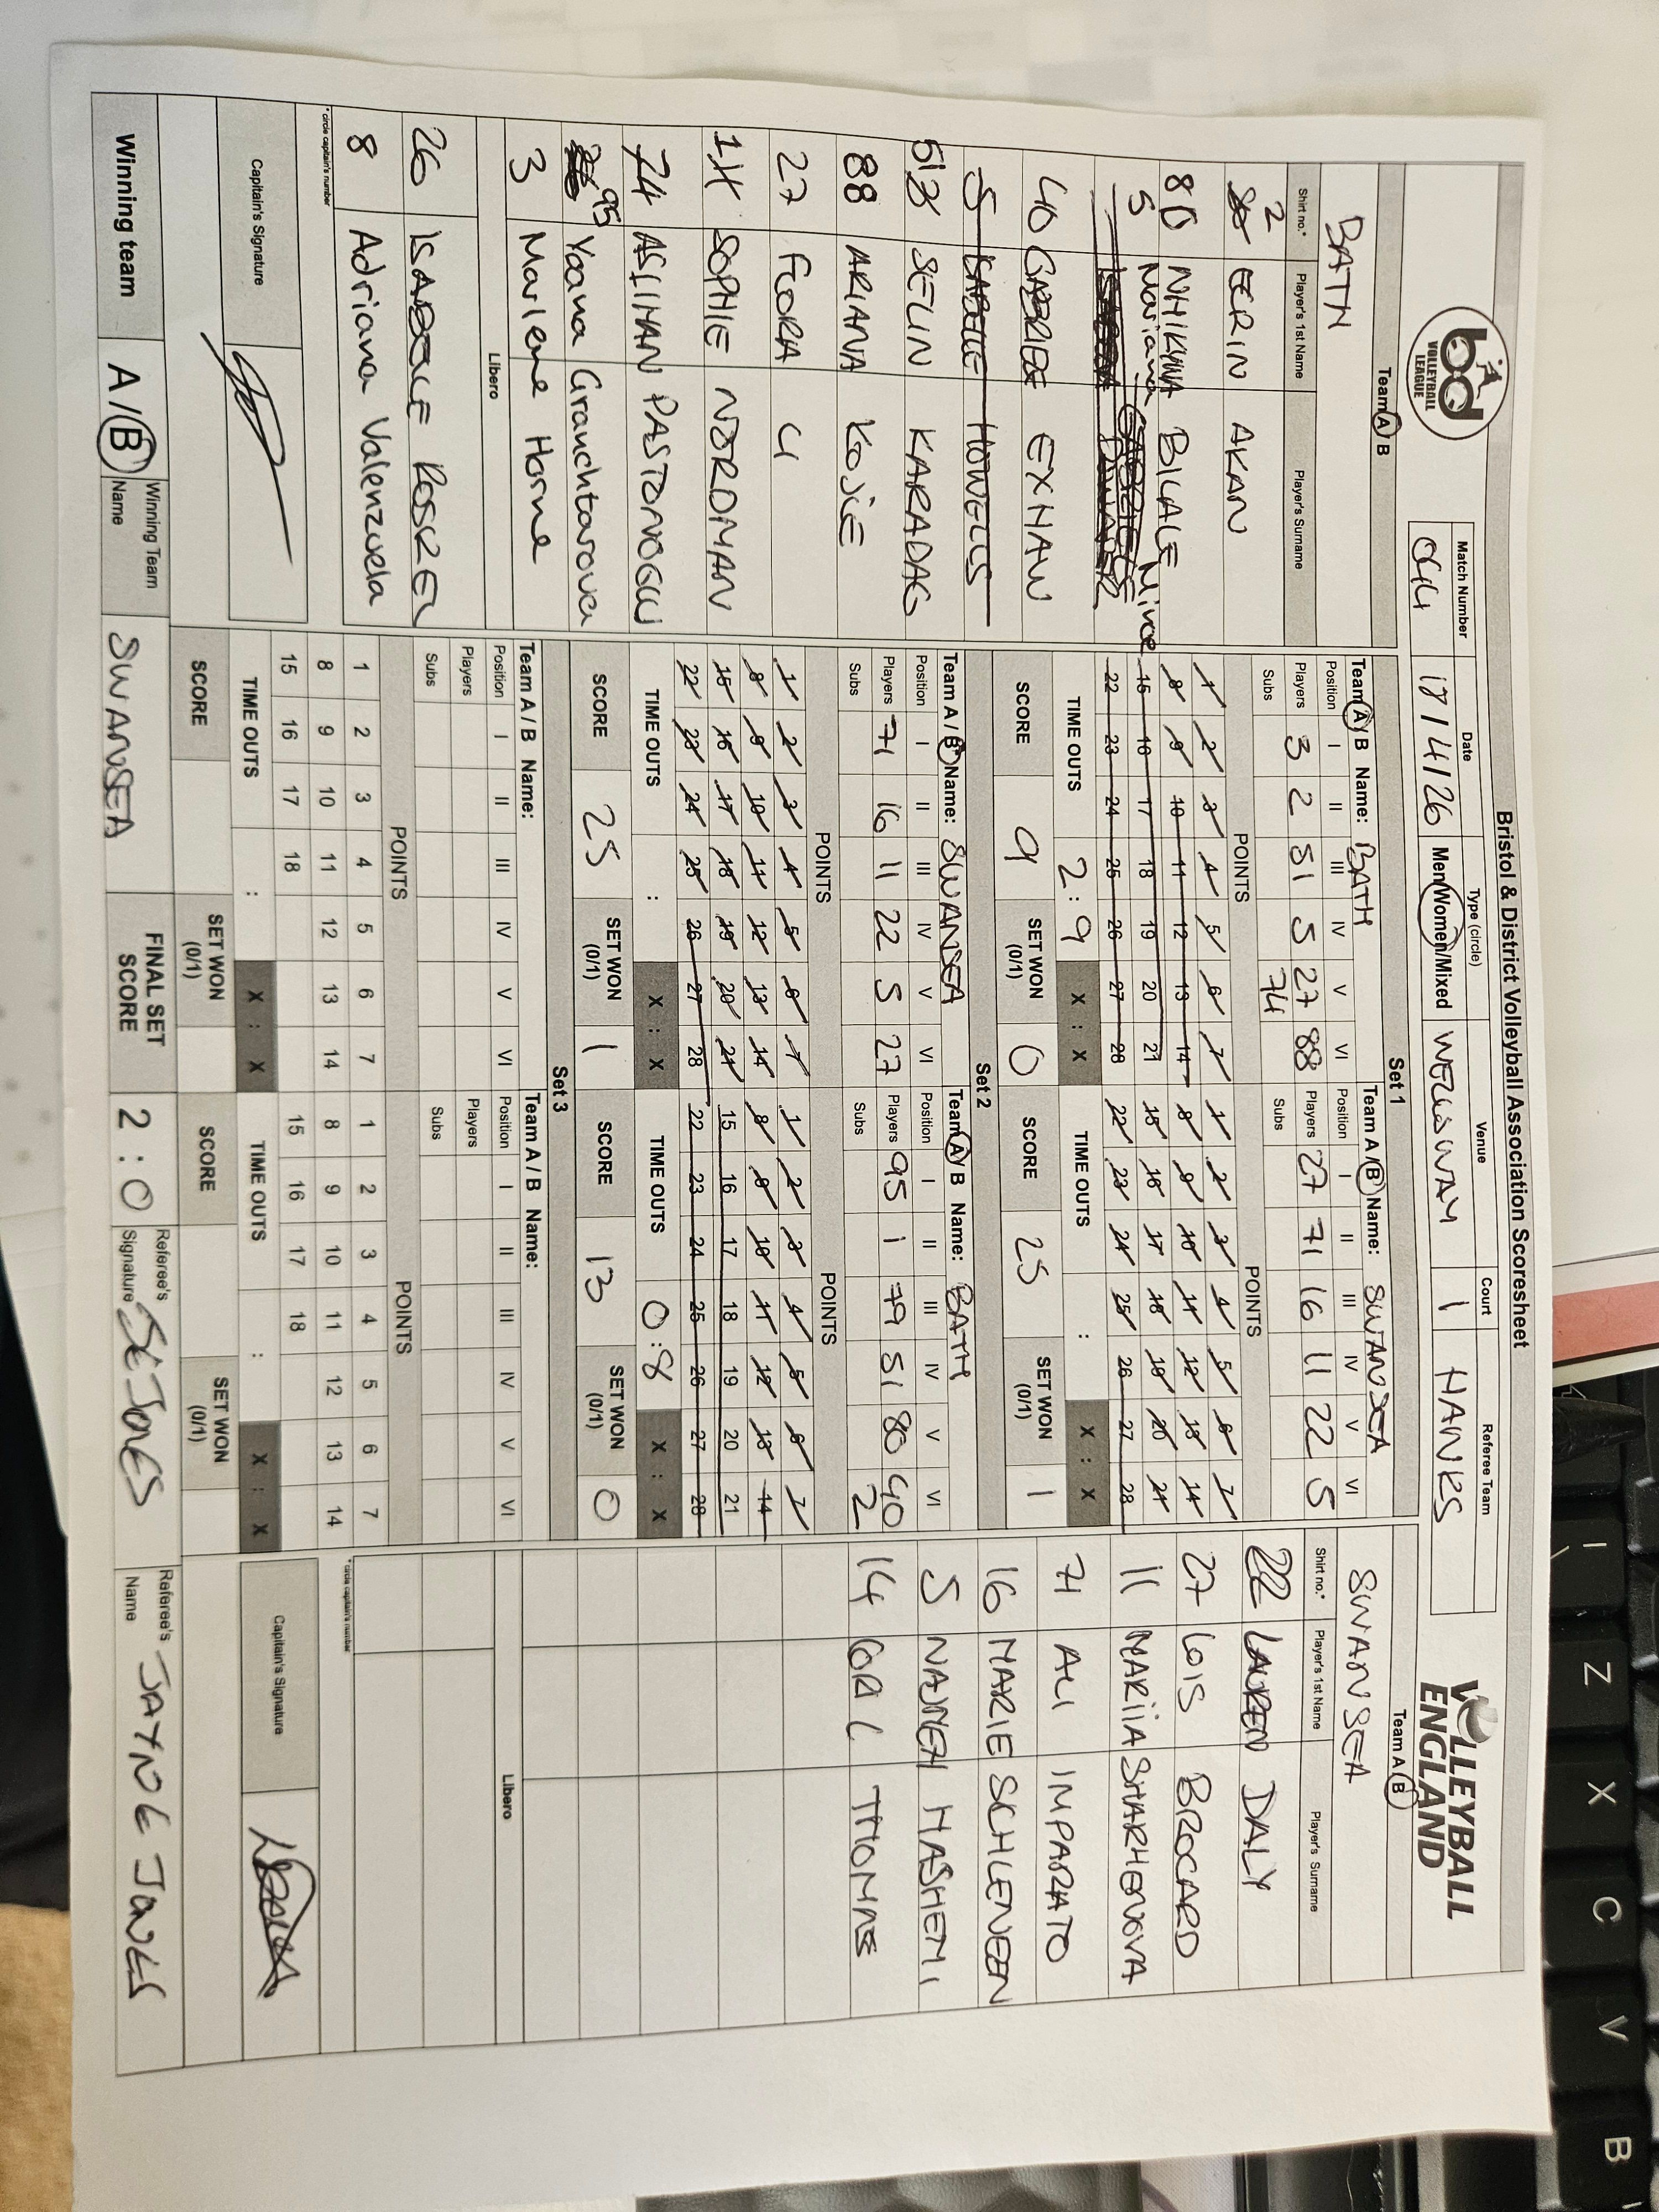 Bristol & District Volleyball Association Scoresheet
bd
VOLLEYBALL
LEAGUE
Match Number Date Type (circle) Venue Court Referee Team
17/4/26 Men/Women/Mixed WELLSWAY 1 HANKS
VOLLEYBALL
ENGLAND
Team A / B
BATH
Shirt no.* Player's 1st Name Player's Surname
2 EERIN AKAN
80 NHIKYNA BILALE
5 Mariana
40 EXHAW
5 ISABELLE HOWELLS
51 SELIN KARADAG
88 ARIANA KOJIE
27 FIORA LI
1 SOPHIE NORDMAN
74 ASLIHAN
95 Yoana Granchtarova
3 Marlene Horne
Libero
26
8 Adriana Valenzuela
*circle captain's number
Capitain's Signature
Set 1
Team A / B Name: BATH
Position I II III IV V VI
Players 3 2 51 5 27 88
Subs 74
POINTS
1 2 3 4 5 6 7
8 9 10 11 12 13 14
15 16 17 18 19 20 21
22 23 24 25 26 27 28
TIME OUTS 2 : 9 X : X
SCORE 9 SET WON (0/1) 0
Team A / B Name: SWANSEA
Position I II III IV V VI
Players 27 71 16 11 22 5
Subs
POINTS
1 2 3 4 5 6 7
8 9 10 11 12 13 14
15 16 17 18 19 20 21
22 23 24 25 26 27 28
TIME OUTS : X : X
SCORE 25 SET WON (0/1) 1
Set 2
Team A / B Name: SWANSEA
Position I II III IV V VI
Players 71 16 11 22 5 27
Subs
POINTS
1 2 3 4 5 6 7
8 9 10 11 12 13 14
15 16 17 18 19 20 21
22 23 24 25 26 27 28
TIME OUTS : X : X
SCORE 25 SET WON (0/1) 1
Team A / B Name: BATH
Position I II III IV V VI
Players 95 1 79 51 80 40
Subs 2
POINTS
1 2 3 4 5 6 7
8 9 10 11 12 13 14
15 16 17 18 19 20 21
22 23 24 25 26 27 28
TIME OUTS 0 : 8 X : X
SCORE 13 SET WON (0/1) 0
Set 3
Team A / B Name:
Position I II III IV V VI
Players
Subs
POINTS
1 2 3 4 5 6 7
8 9 10 11 12 13 14
15 16 17 18
TIME OUTS : X : X
SCORE SET WON (0/1)
Team A / B Name:
Position I II III IV V VI
Players
Subs
POINTS
1 2 3 4 5 6 7
8 9 10 11 12 13 14
15 16 17 18
TIME OUTS : X : X
SCORE SET WON (0/1)
Team A / B
SWANSEA
Shirt no.* Player's 1st Name Player's Surname
22 LAUREN DALY
27 LOIS BROCARD
11 MARIIA SHARHENOVA
71 ALI IMPARATO
16 MARIE SCHLENEEN
5 NAJMEH HASHEMI
14 CORI THOMAS
Libero
*circle captain's number
Capitain's Signature
Winning team A / B Winning Team Name SWANSEA FINAL SET SCORE 2 : 0 Referee's Signature SE JONES Referee's Name JAYNOE JONES
Z
X
C
V
B